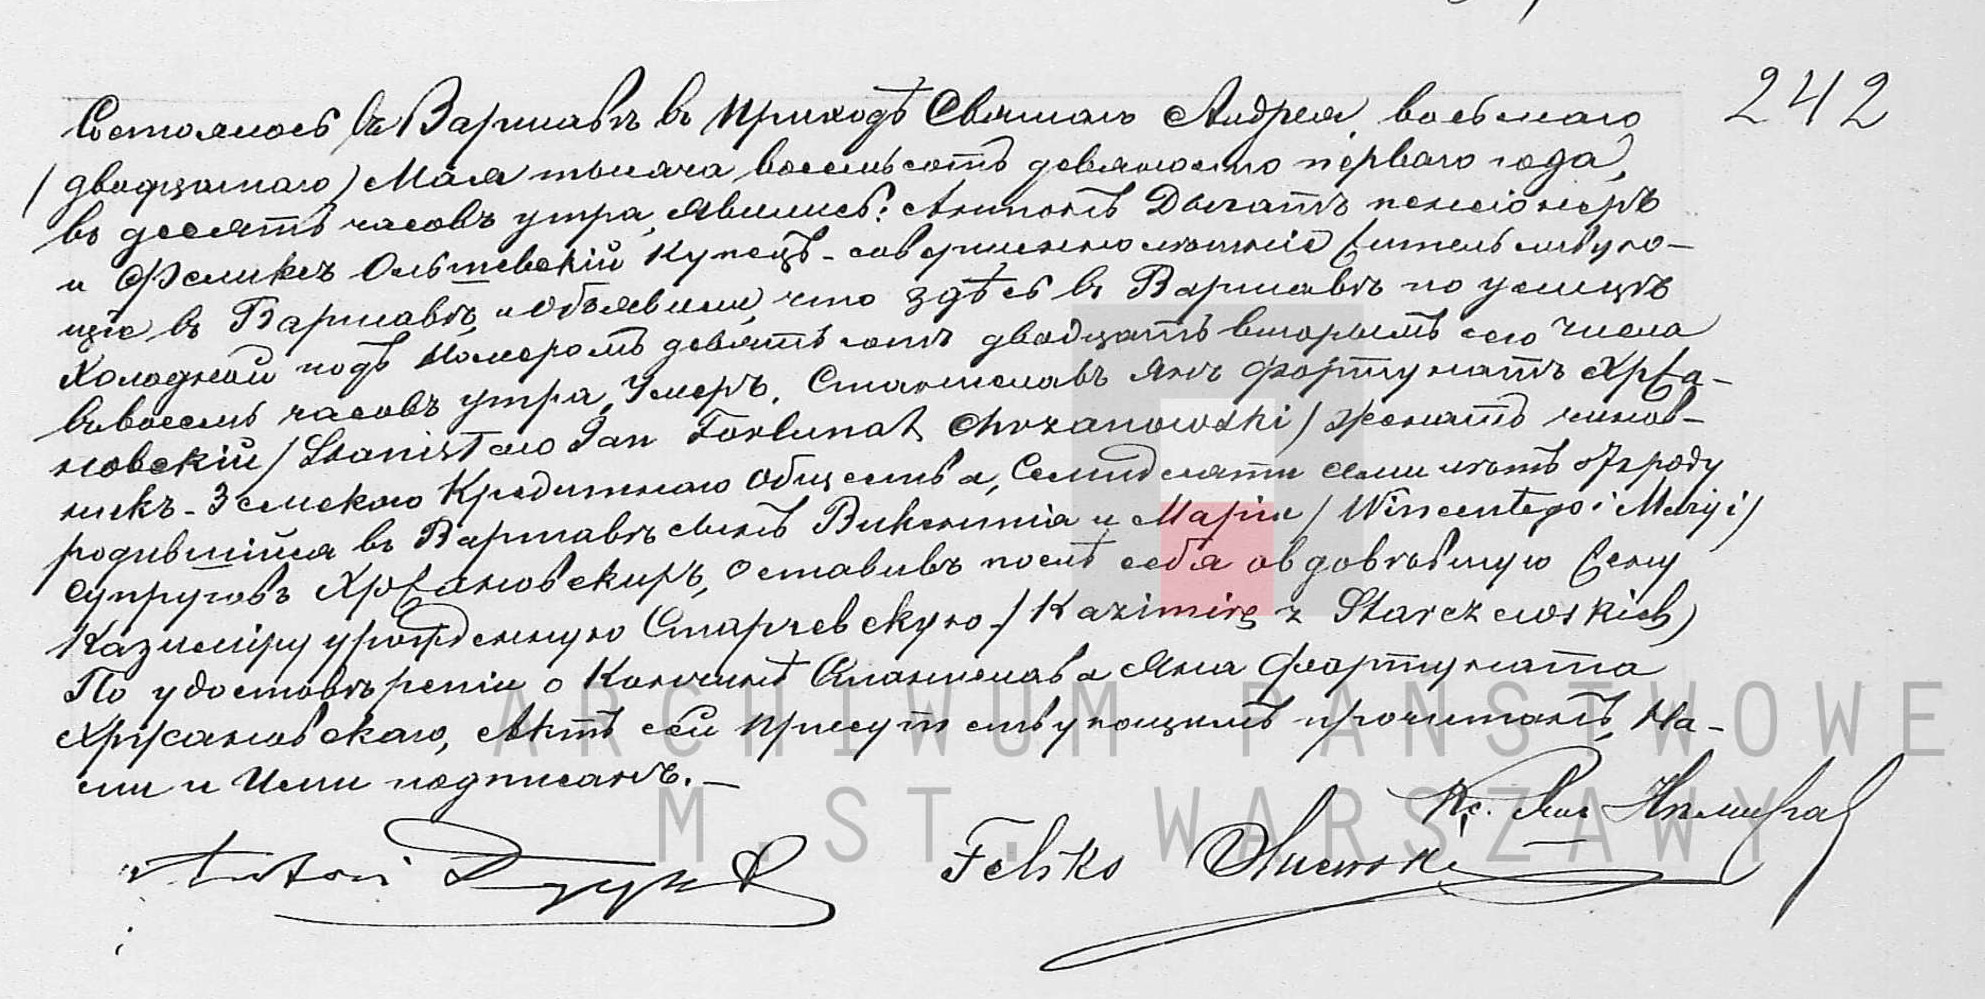 242
Состоялось въ Варшавѣ въ Приходѣ Святаго Андрея, восьмаго
/двадцатаго/ Мая тысяча восемьсотъ девяносто перваго года,
въ десять часовъ утра, явились: Антонъ Дыгатъ пенсіонеръ
и Феликсъ Ольшевскій Купецъ - совершеннолѣтніе жительствую-
щіе въ Варшавѣ, и объявили, что здѣсь въ Варшавѣ по улицѣ
Холодной подъ Номеромъ девятьсотъ двадцать вторымъ сего числа
въ восемь часовъ утра, Умеръ, Станиславъ Янъ Фортунатъ Хржа-
новскій /Stanisław Jan Fortunat Chrzanowski/ женатъ чинов-
никъ - Земскаго Кредитнаго Общества, Семидесяти семи лѣтъ отъ роду
родившійся въ Варшавѣ сынъ Викентія и Маріи /Wincentego i Maryi/
супруговъ Хржановскихъ, Оставивъ послѣ себя овдовѣвшую жену
Казиміру урожденную Старчевскую - /Kazimirę z Starczewskich/
По удостовѣреніи о Кончинѣ Станислава Яна Фортуната
Хржановскаго, Актъ сей присутствующимъ прочитанъ, На-
ми и Ими подписанъ. -
Кс. Янъ
Antoni Feliks
ARCHIWUM PAŃSTWOWE
M. ST. WARSZAWY